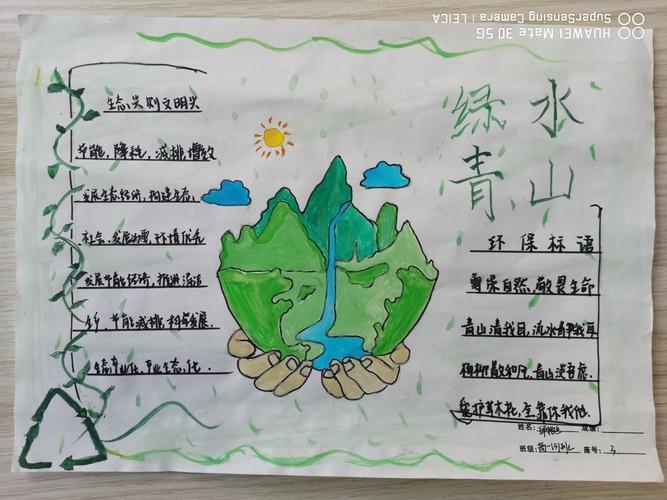 绿水
青山
生态兴则文明兴
节能，降耗，减排，增效
发展生态经济，构建生态，
社会、发展为要，环境优先
发展节能经济，推进清洁
生产，节能减排，构与发展．
生态产业化，产业生态化．
环保标语
尊崇自然，敬畏生命
青山清我目，流水静我耳
杨柳散和风，青山澹吾虑．
爱护草木花，全靠你我他．
姓名：
成绩：
班级：
座号：3
HUAWEI Mate 30 5G
SuperSensing Camera | LEICA